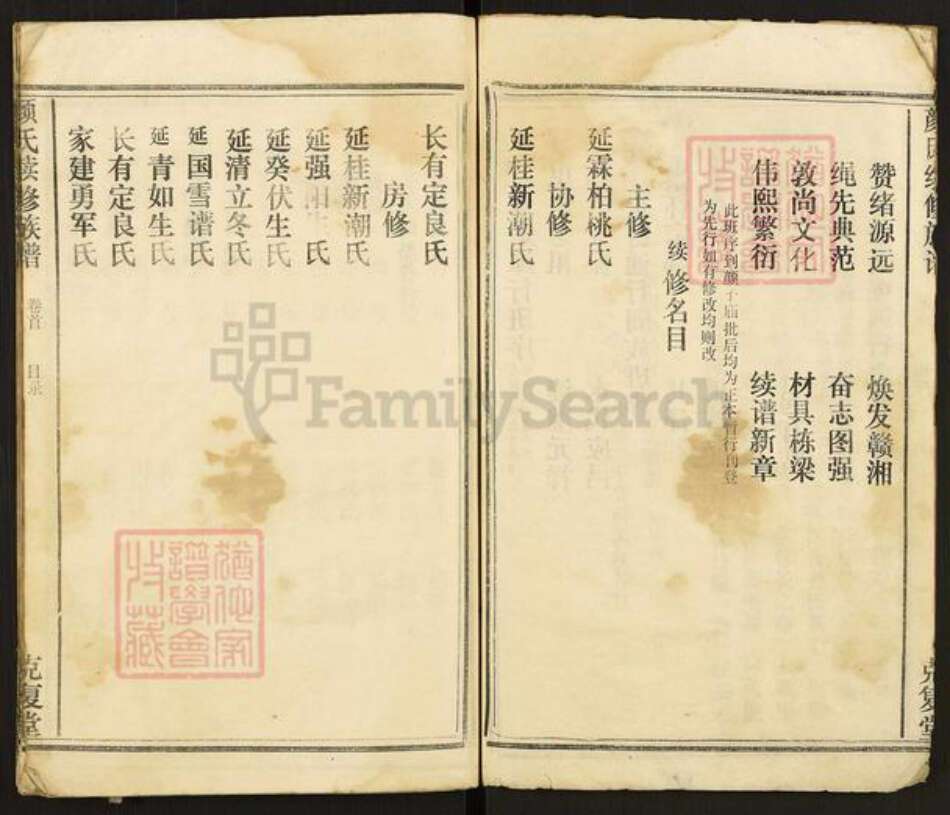 赞绪源远 焕发赣湘
绳先典范 奋志图强
敦尚文化 材具栋梁
伟熙繁衍 续谱新章
此班序到颜子庙批后均为正本暂行刊登
为先行如有修改均则改
续修名目
主修
延霖柏桃氏
协修
延桂新潮氏
长有定良氏
房修
延桂新潮氏
延强 氏
延癸伏生氏
延清立冬氏
延国雪谱氏
延青如生氏
长有定良氏
家建勇军氏
颜氏续修族谱
卷首
目录
克复堂
颜氏续修族谱
克复堂
猶他家
譜學會
收藏
FamilySearch